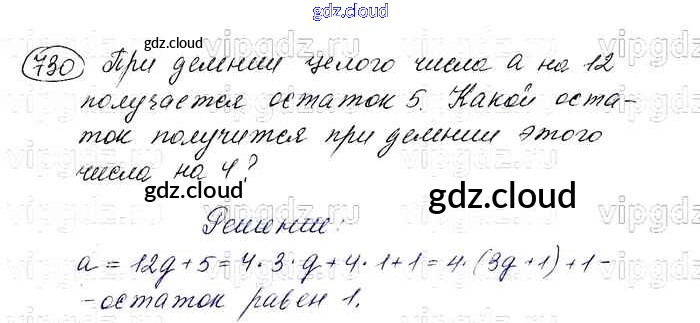 gdz.cloud
730 При делении целого числа a на 12
gdz.cloud
получается остаток 5. Какой оста-
ток получится при делении этого
числа на 4?
gdz.cloud
gdz.cloud
Решение:
a = 12g + 5 = 4 · 3 · g + 4 · 1 + 1 = 4 · (3g + 1) + 1 -
- остаток равен 1.
gdz.cloud
gdz.cloud